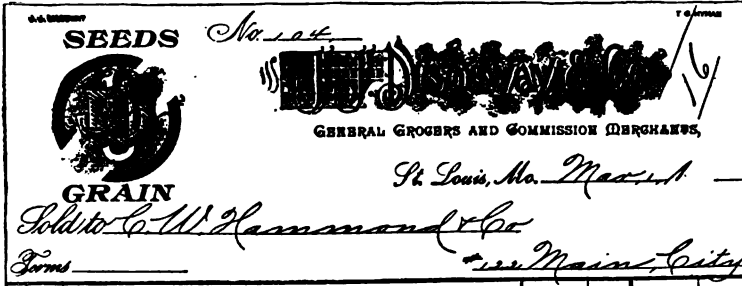 SEEDS
No. 104
GENERAL GROCERS AND COMMISSION MERCHANTS,
St. Louis, Mo. Mar. 1
GRAIN
Sold to C. W. Hammond & Co
Terms
#122 Main, City